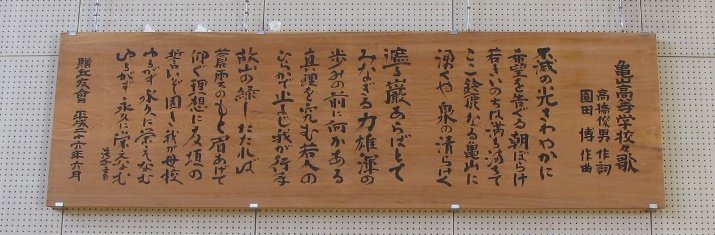 亀山高等学校々歌
高橋俊男 作詞
園田 博 作曲
不滅の光さわやかに
希望を貫く朝ぼらけ
若きいのちは満ち満ちて
ここ鈴鹿なる亀山に
湧くや 泉の清らけく
遮る巌あらばとて
みなぎる力雄渾の
歩みの前に何かある
真理を究む若人の
などて止まじ我が行手
故山の緑したたれば
慕雲のもと眉あげて
仰ぐ理想に友垣の
誓いぞ固し我が母校
ゆるがず 永久に栄えなむ
ゆるがず 永久に栄えなむ
贈 校友會 平成二十六年六月